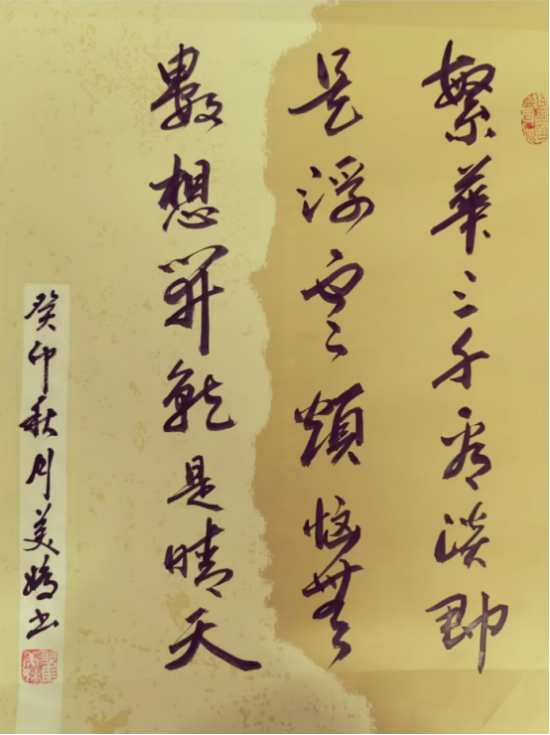 繁華三千看淡即
是浮雲煩惱無
數想開就是晴天
癸卯秋月美嬌书